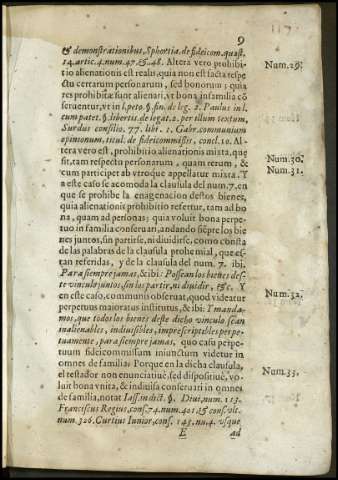 9
& demonstrationibus, Sphortia. de fideicom. quæst.
14. artic. 4. num. 47. & 48. Altera vero prohibi-
tio alienationis est realis, quia non est facta respe
ctu certarum personarum, sed bonorum; quia
res prohibitæ sunt alienari, vt bona in familia cō
seruentur, vt in l. peto. §. fin. de leg. 2. Paulus in l.
cum pater. §. libertis. de legat. 2. per illum textum,
Surdus consilio. 77. libr. 1. Gabr. communium
opinionum, titul. de fideicommissis, concl. 10. Al-
tera vero est, prohibitio alienationis mixta, que
fit, tam respectu personarum, quam rerum, &
cum participet ab vtroque appellatur mixta. Y
a este caso se acomoda la clausula del num. 7. en
que se prohibe la enagenacion destos bienes,
quia alienationis prohibitio refertur, tam ad bo
na, quam ad personas; quia voluit bona perpe-
tuo in familia conseruari, andando siēpre los bie
nes juntos, sin partirse, ni diuidirse, como consta
de las palabras de la clausula prohemial, que es-
tan referidas, y de la clausula del num. 7. ibi,
Para siempre jamas, & ibi: Possean los bienes des-
te vinculo juntos, sin los partir, ni diuidir, &c. Y
en este caso, communis obseruat, quod videatur
perpetuus maioratus institutus, & ibi: Y manda-
mos, que todos los bienes deste dicho vinculo sean
inalienables, indiuisibles, imprescriptibles perpe-
tuamente, para siempre jamas, quo casu perpe-
tuum fideicommissum iniunctum videtur in
omnes de familia: Porque en la dicha clausula,
el testador non enunciatiuè, sed dispositiuè, vo-
luit bona vnita, & indiuisa conseruari in omnes
de familia, notat Iass. in dict. §. Diui, num. 113.
Franciscus Regius, cons. 74. num. 401. & cons. vlt.
num. 326. Curtius Iunior, cons. 143. nu. 4. vsque
E ad
Num. 29.
Num. 30.
Num. 31.
Num. 32.
Num. 33.